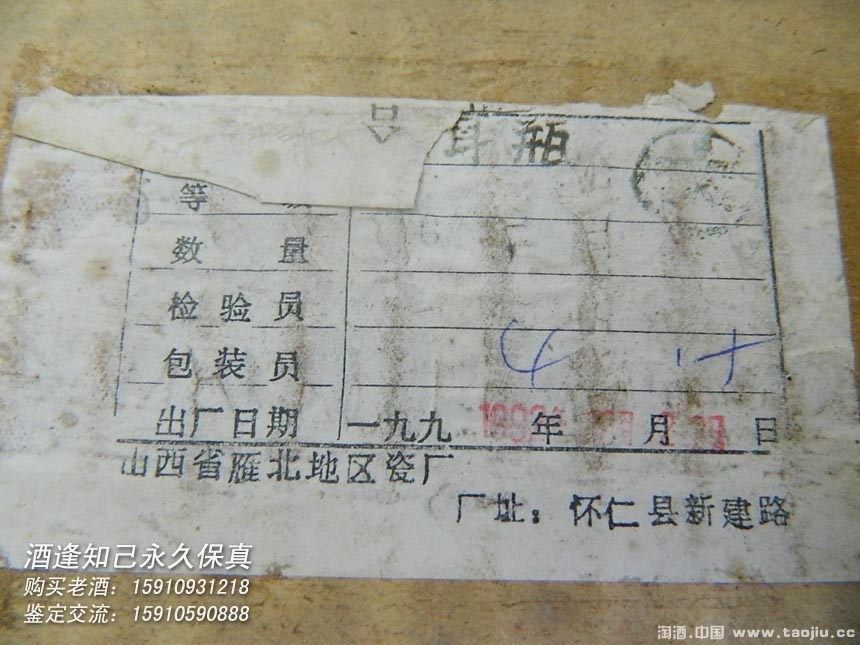 合
耳瓶
等
数量
检验员
包装员
出厂日期 一九九 年 月 日
山西省雁北地区瓷厂
厂址：怀仁县新建路
酒逢知己永久保真
购买老酒：15910931218
鉴定交流：15910590888
淘酒.中国 www.taojiu.cc